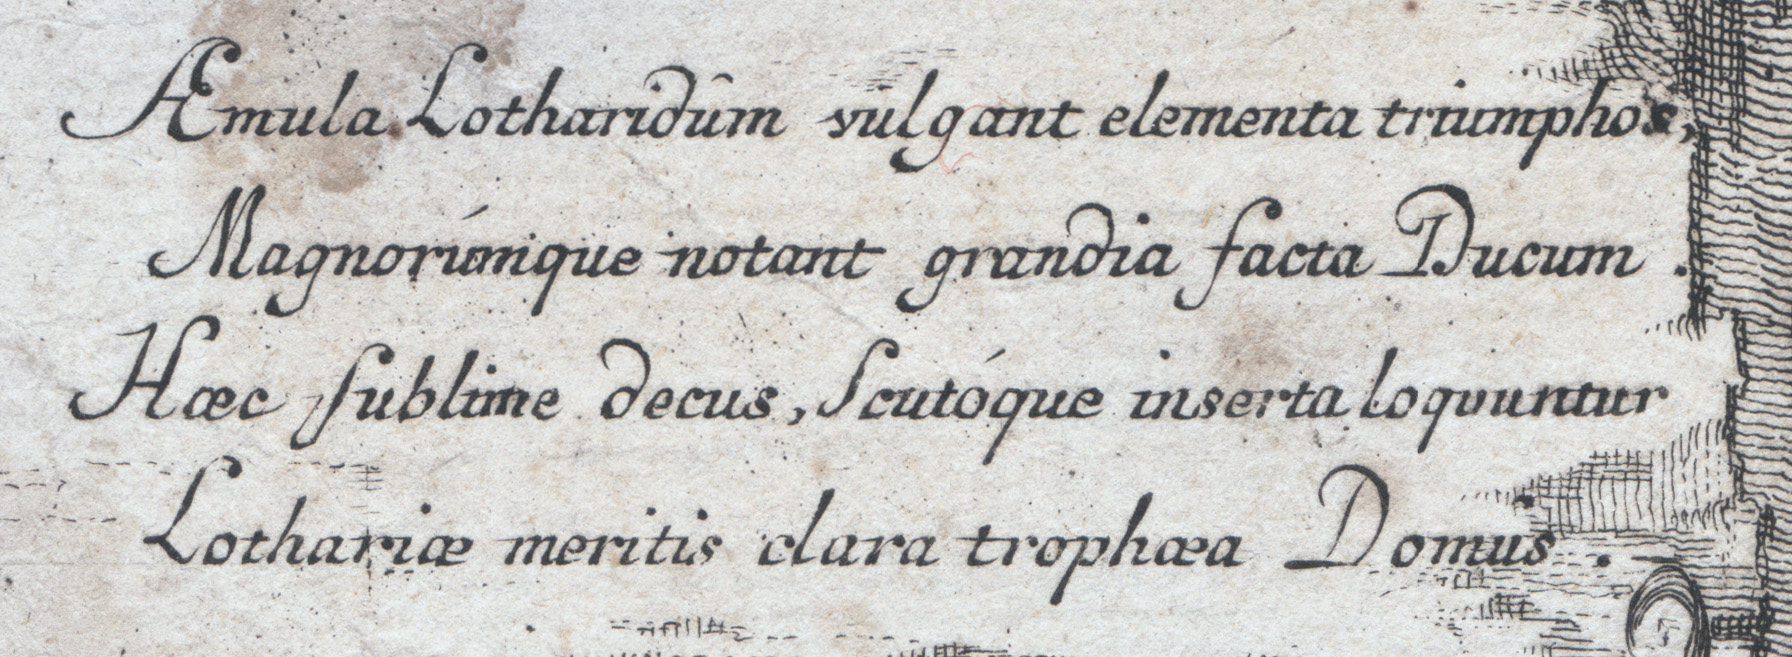 Æmula Lotharidûm vulgant elementa triumphos,
Magnorúmque notant grandia facta Ducum.
Hæc sublime decus, Scutóque inserta loquuntur
Lothariæ meritis clara trophæa Domus.